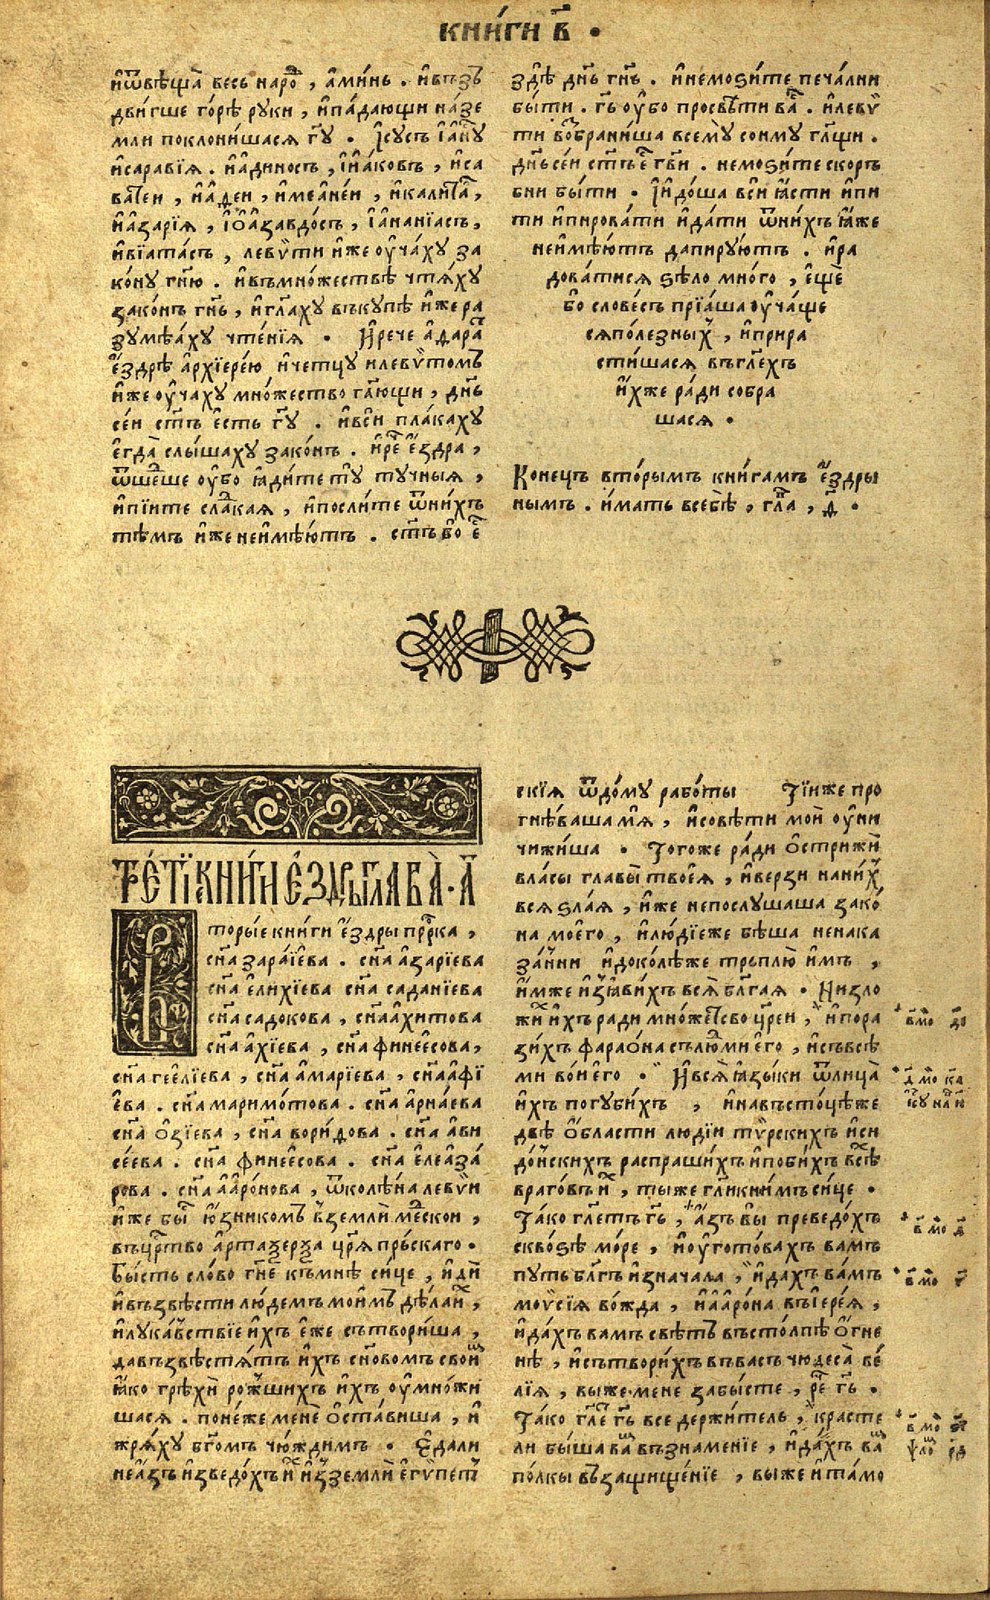 КНИ́ГИ В҃ .
и҆ѿвѣща̀ весь наро́д , а҆ми́нь . и҆въз
дви́гше го́рѣ руки , и҆па́дающи на́зе
мли поклони́шася г҃у . І҆сусъ і҆а́нꙋ
и҆саравїя . и҆а҆диносъ , і҆и҆а́ковъ , и҆са
ватеи , и҆а́деи , и҆меа҆не́и , и҆калита ,
и҆а҆зарїя , і҆ѻ҆а҆завдо́съ , і҆а҆нанїасъ ,
и҆вїата́съ , леvѵ́ти и҆же ѹ҆ча́ху за
ко́ну гн҃ю . и҆въмно́жествѣ чтя́ху
зако́нъ гн҃ь , и҆гл҃аху въкупѣ и҆же ра
зумѣа́ху чте́нїя . И҆рече а҆дара
е҆́здрѣ а҆рхїере́ю и҆четцу илеvѵ́томъ
и҆же ѹ҆ча́ху мно́жество гл҃ющи , дн҃ь
се́и ст҃ъ е҆́сть г҃у . и҆вси́ пла́каху
е҆гда̀ слы́шаху зако́нъ . и҆рѐ е҆́здра ,
ѿше́дше ѹ҆́бо ꙗ҆ди́те тꙋ ту́чныя ,
и҆пїи́те сла́дкая , и҆посли́те ѿни́хъ
тѣ́мъ и҆же неи҆мѣ́ютъ . ст҃ъ бо е҆
здѣ̀ дн҃ь гн҃ь . и҆немоѕи́те печа́лни
бы́ти . г҃ь ѹ҆́бо просвѣти ва . и҆леvѵ̀
ти во́збрани́ша всемꙋ̀ сонму гл҃щи .
дн҃ьсе́и ст҃ъ е҆ гв҃и . немоѕи́те скоръ
бни бы́ти . І҆и҆до́ша вси̂ ꙗ҆́сти и҆пи
ти и҆пирова́ти и҆да́ти ѿни́хъ ꙗ҆́же
неи҆мѣ́ютъ дапирую́тъ . и҆ра
дова́тися ѕѣло мно́го , е҆щѐ
бо словесъ прїа́ша ѹ҆ча́ще
сяполе́зных , и҆прира
сти́шася въгл҃ехъ
и҆́хже ра́ди собра
шася .
Коне́цъ вто́рымъ кни́гамъ е҆́здры
нымъ . и҆́мать всебѣ̀ , гла , д҃ .
ТРЕ́ТЇИ КНИ́ГИ Е҆́ЗДРЫ ГЛАВА̀ . А҃
Вторы́е книги е҆́здры пррка ,
сн҃а зара́їева . сн҃а а҆за́рїева
сн҃а е҆ли́хїева сн҃а саданїева
сн҃а садокова , сн҃а а҆хитова
сн҃а а҆хїева , сн҃а финее́сова ,
сн҃а гее҆лїева , сн҃а а҆марїева , сн҃а а҆фї
е҆ва . сн҃а маримо́това . сн҃а а҆рна́ева
сн҃а ѻ҆зїева , сн҃а вори́дова . сн҃а а҆ви
се́ева . сн҃а финее́сова . сн҃а е҆леа҆за́
рова . сн҃а а҆а҆ро́нова , ѿколѣ́на леvѵ́и
и҆же бы ю҆́зникомъ вземлѝ ме́дскои ,
въцр҃тво а҆ртаѯе́рѯа цр҃я пръ́скаго .
Бы́сть сло́во гн҃е къмнѣ̀ си́це , и҆дѝ
и҆възвѣсти лю́демъ мои́мъ дѣ́ла и҆ ,
и҆лука́вствїе и҆́хъ е҆́же сътвори́ша ,
давъзвѣстя́тъ и҆́хъ сн҃овомъ свои
ꙗ҆́ко грѣхѝ ро́ждшихъ и҆́хъ ѹ҆мно́жи
шася . поне́же менѐ ѻ҆ста́виша , и҆
жря́ху бг҃омъ чю́ждимъ . Е҆дали
неа҆́зъ и҆зведо́хъ и҆ и҆з̾землѝ е҆гѵ́пет
скїя ѿдо́му рабо́ты Ті́иже про
гнѣ́ваша мя̀ , и҆совѣ́ти моѝ ѹ҆ни
чижи́ша . Того́же ра́ди ѻ҆стрижѝ
вла́сы главы̀ твоея̀ , и҆ве́рзи нани́х
вся̀ ѕла́я , и҆же непослу́шаша зако́
на моего̀ , и҆лю́дїеже бѣ́ша ненака
за́нни и҆доко́лѣже тръплю̀ и҆мъ ,
и҆́мже и҆з̾ꙗ҆ви́хъ вся̀ бл҃гая . Низло
жи и҆́хъ ра́ди мно́жество цр҃ей , и҆пора
зи́хъ фараѻ́на сълю́дми е҆го̀ , и҆съвсѣ
ми во́и е҆го̀ . И҆вся̀ ꙗ҆зы́ки ѿлица̀
и҆́хъ погуби́хъ , и҆навъсто́цѣже
двѣ̀ ѻ҆́бласти людїи тѵ́рскихъ и҆си
до́нскихъ распраши́хъ и҆поби́хъ всѣ̀
враго́въ и҆ , тыже гл҃и кни́мъ си́це .
Та́ко гл҃етъ г҃ь , а҆́зъ вы̀ преведо́хъ
сквоѕѣ̀ мо́ре , и҆ѹ҆гото́вахъ вамъ
путь бл҃гъ и҆знача́ла , и҆дахъ ва́мъ
моѵ̈сїя во́жда , и҆а҆а҆ро́на въїере́я ,
и҆да́хъ вамъ свѣ́тъ въсто́лпѣ ѻ҆́гне
нѣ , и҆сътвори́хъ въва́съ чюдеса̀ ве́
лїя , вы́же мене забы́сте , рѐ г҃ь .
Та́ко гле г҃ь все держи́тель , кра́сте
ли бы́ша ва въ́знаменїе , и҆да́хъ ва
по́лки въ́защище́нїе , вы́же и҆та́мо